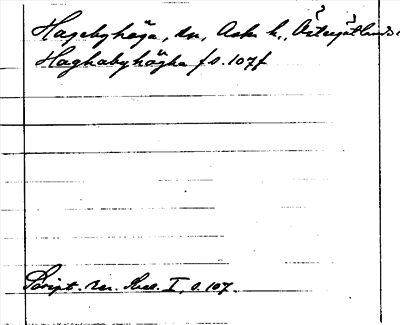 Hagebyhöga, sn, Aska h., Östergötlands
Haghabyhögha fo. 107f
Script. rer. Svec. I, s. 107.